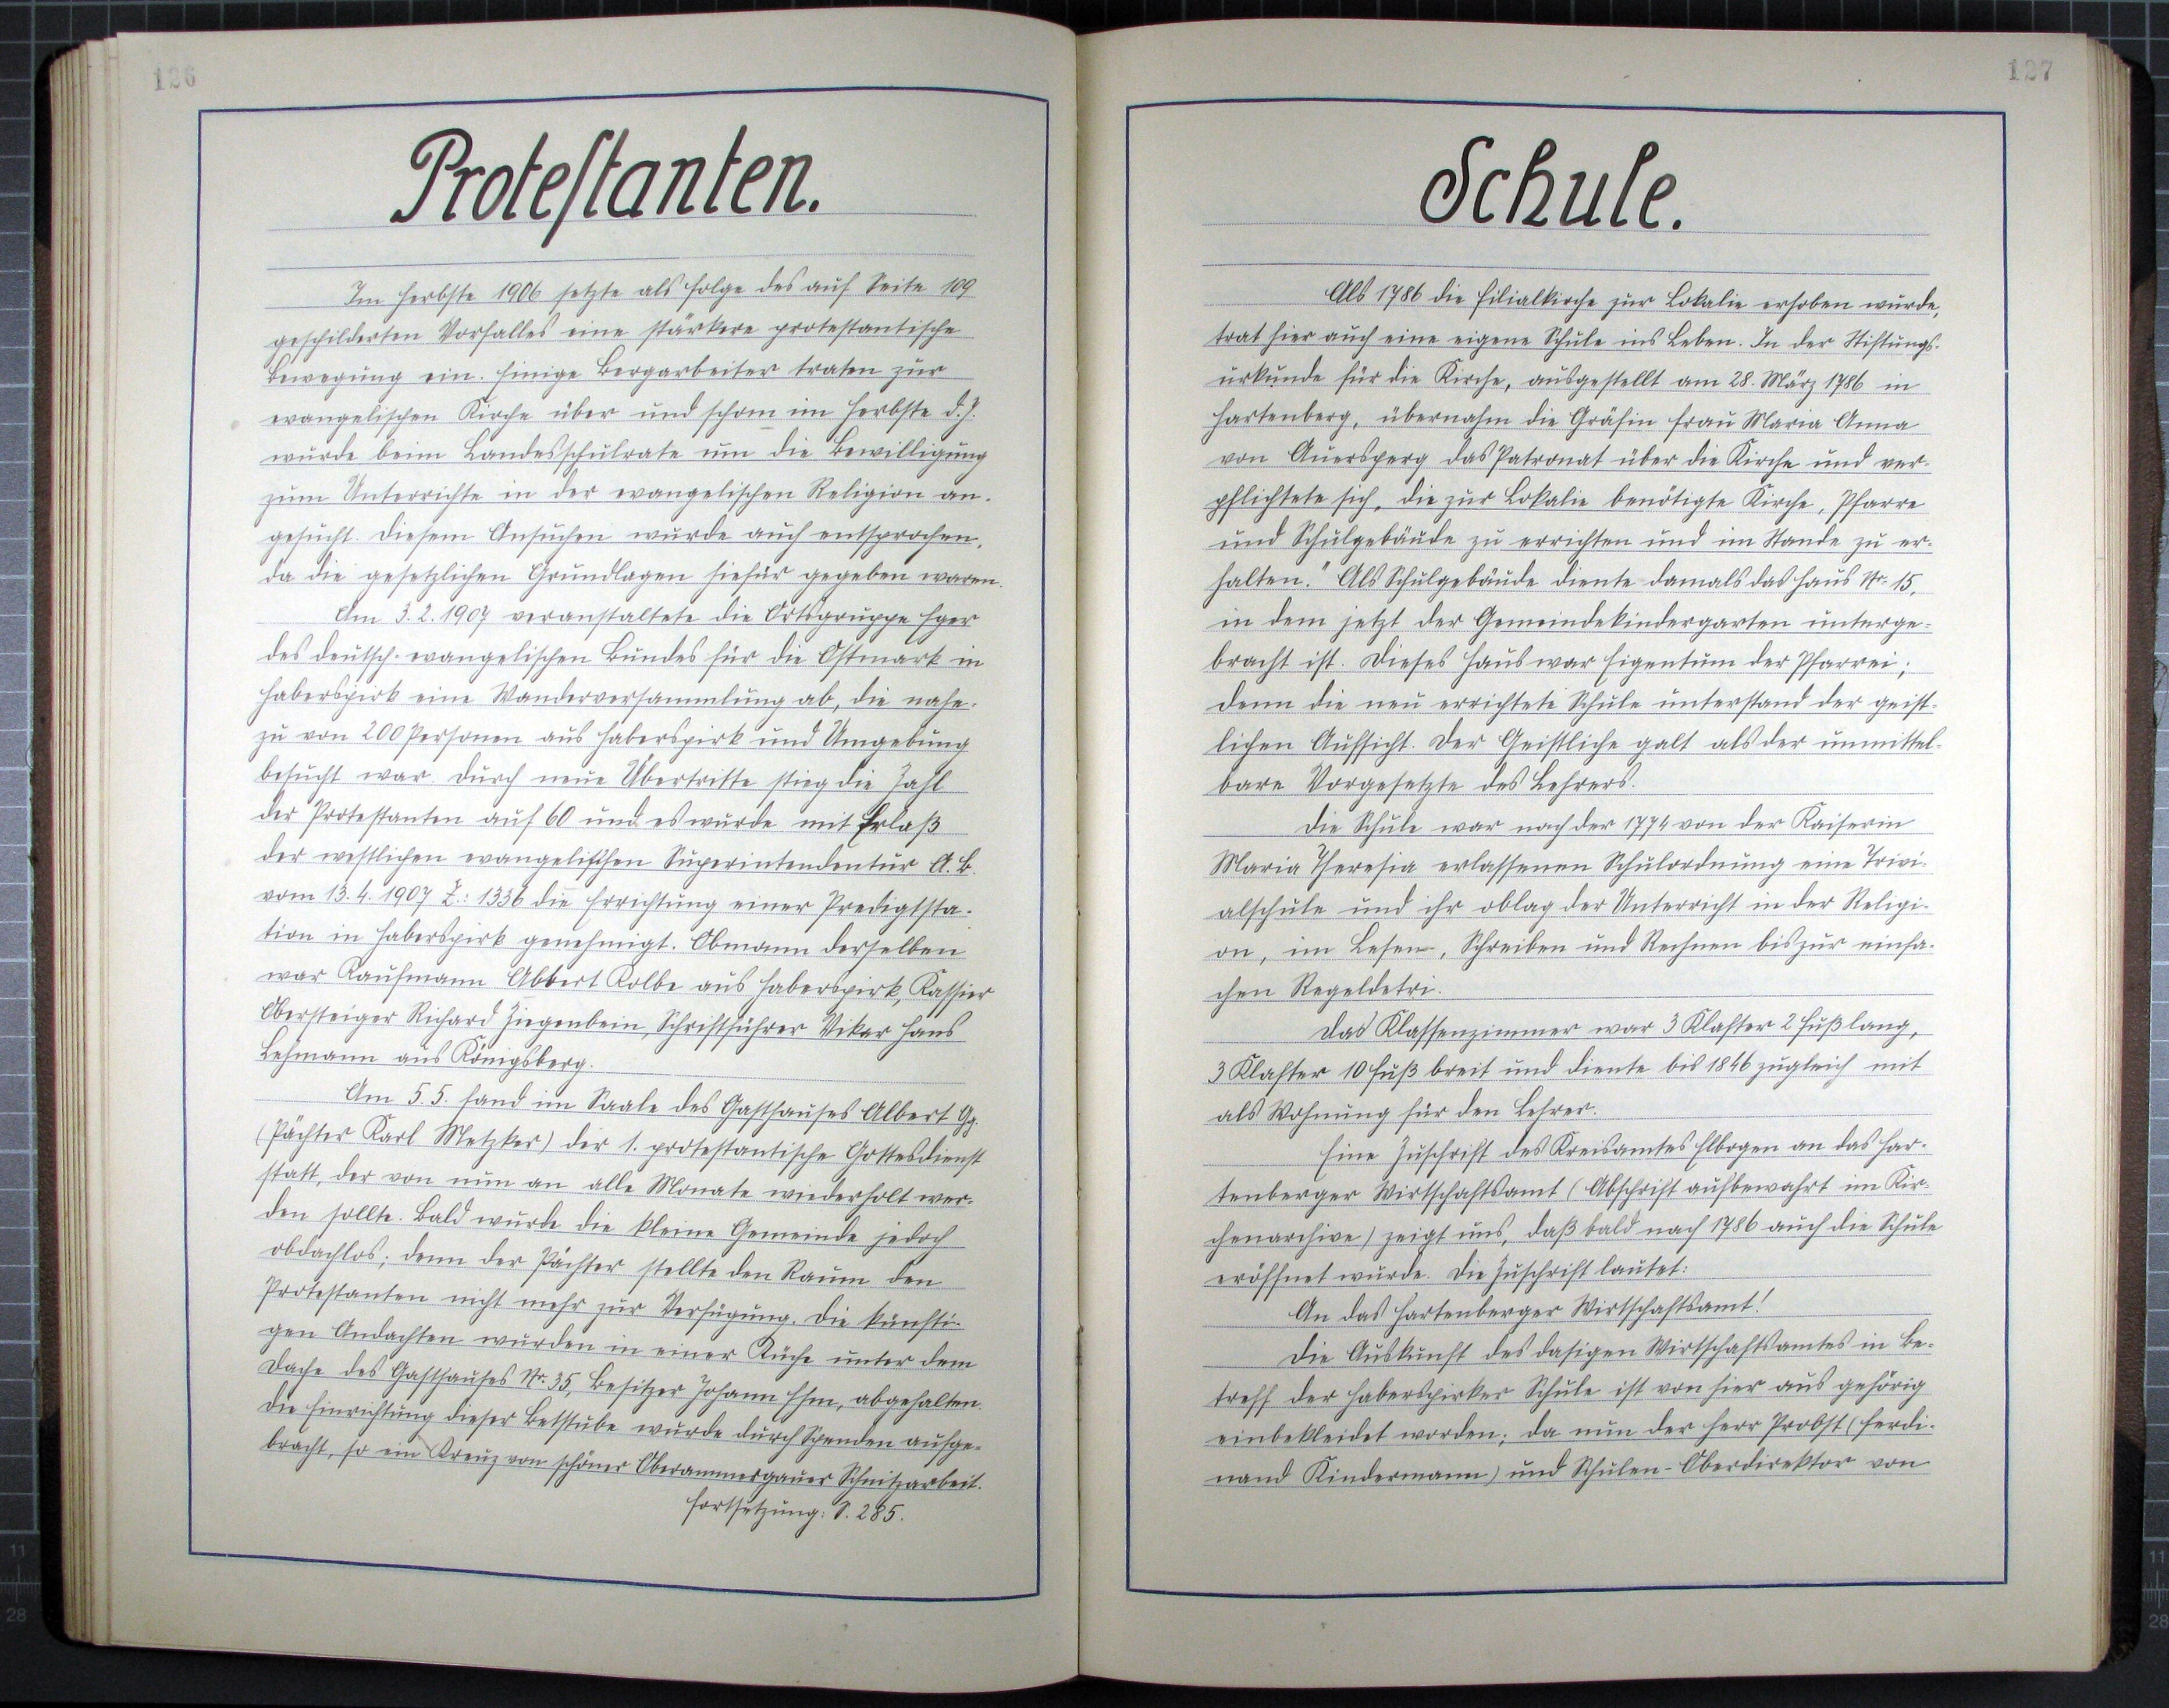 126
Protestanten.
Im Herbste 1906 setzte als Folge des auf Seite 109
geschilderten Vorfalles eine stärkere protestantische
Bewegung ein. Einige Bergarbeiter traten zur
evangelischen Kirche über und schom im Herbste d. J.
wurde beim Landesschulrate um die Bewilligung
zum Unterrichte in der evangelischen Religion an-
gesucht. Diesem Ansuchen wurde auch entsprochen,
da die gesetzlichen Grundlagen hiefür gegeben waren.
Am 3. 2. 1907 veranstaltete die Ortsgruppe Eger
des deutsch-evangelischen Bundes für die Ostmark in
Haberspirk eine Wanderversammlung ab, die nahe-
zu von 200 Personen aus Haberspirk und Umgebung
besucht war. Durch neue Übertritte stieg die Zahl
der Protestanten auf 60 und es wurde mit Erlaß
der westlichen evangelischen Superintendentur A. B.
vom 13. 4. 1907 Z.: 1336 die Errichtung einer Predigtsta-
tion in Haberspirk genehmigt. Obmann derselben
war Kaufmann Albert Kolbe aus Haberspirk, Kassier
Obersteiger Richard Ziegenbein, Schriftführer Vikar Hans
Lehmann aus Königsberg.
Am 5. 5. fand im Saale des Gasthauses Albert Gg.
(Pächter Karl Metzker) der 1. protestantische Gottesdienst
statt, der von nun an alle Monate wiederholt wer-
den sollte. Bald wurde die kleine Gemeinde jedoch
obdachlos; denn der Pächter stellte den Raum den
Protestanten nicht mehr zur Verfügung. Die künfti-
gen Andachten wurden in einer Küche unter dem
Dache des Gasthauses Nr. 35, Besitzer Johann Ehm, abgehalten.
Die Einrichtung dieser Betstube wurde durch Spenden aufge-
bracht, so ein Kreuz von schöner Oberammergauer Schnitzarbeit.
Fortsetzung: S. 285.
127
Schule.
Als 1786 die Filialkirche zur Lokalie erhoben wurde,
trat hier auch eine eigene Schule ins Leben. In der Stiftungs-
urkunde für die Kirche, ausgestellt am 28. März 1786 in
Hartenberg, übernahm die Gräfin Frau Maria Anna
von Auersperg das Patronat über die Kirche und ver-
pflichtete sich, „die zur Lokalie benötigte Kirche, Pfarre
und Schulgebäude zu errichten und im Stande zu er-
halten." Als Schulgebäude diente damals das Haus Nr. 15,
in dem jetzt der Gemeindekindergarten unterge-
bracht ist. Dieses Haus war Eigentum der Pfarrei;
denn die neu errichtete Schule unterstand der geist-
lichen Aufsicht. Der Geistliche galt als der unmittel-
bare Vorgesetzte des Lehrers.
Die Schule war nach der 1774 von der Kaiserin
Maria Theresia erlassenen Schulordnung eine Trivi-
alschule und ihr oblag der Unterricht in der Religi-
on, im Lesen, Schreiben und Rechnen bis zur einfa-
chen Regeldetri.
Das Klassenzimmer war 3 Klafter 2 Fuß lang,
3 Klafter 10 Fuß breit und diente bis 1846 zugleich mit
als Wohnung für den Lehrer.
Eine Zuschrift des Kreisamtes Elbogen an das Har-
tenberger Wirtschaftsamt (Abschrift aufbewahrt im Kir-
chenarchive) zeigt uns, daß bald nach 1786 auch die Schule
eröffnet wurde. Die Zuschrift lautet:
An das Hartenberger Wirtschaftsamt!
Die Auskunft des dasigen Wirtschaftsamtes in Be-
treff der Haberspirker Schule ist von hier aus gehörig
einbekleidet worden; da nun der Herr Probst (Ferdi-
nand Kindermann) und Schulen-Oberdirektor von
11
28
11
28